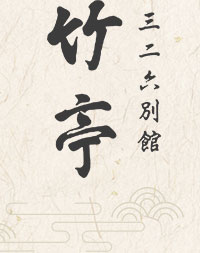 三二六別館
竹亭